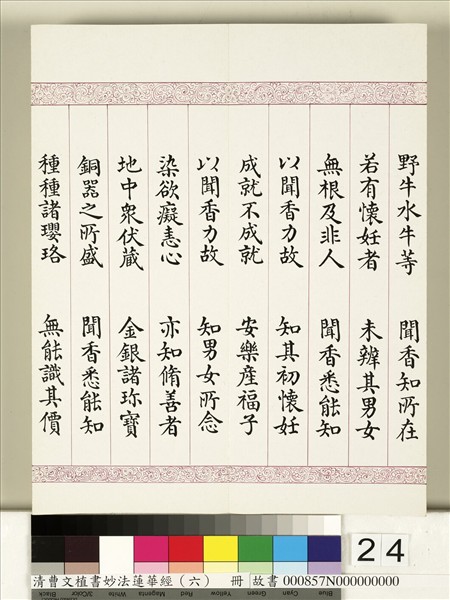 野牛水牛等 聞香知所在
若有懷妊者 未辨其男女
無根及非人 聞香悉能知
以聞香力故 知其初懷妊
成就不成就 安樂產福子
以聞香力故 知男女所念
染欲癡恚心 亦知脩善者
地中眾伏藏 金銀諸珍寶
銅器之所盛 聞香悉能知
種種諸瓔珞 無能識其價
Black 3/Color White Magenta Red Yellow Green Cyan Blue
24
清曹文植書妙法蓮華經(六) 冊 故書 000857N000000000